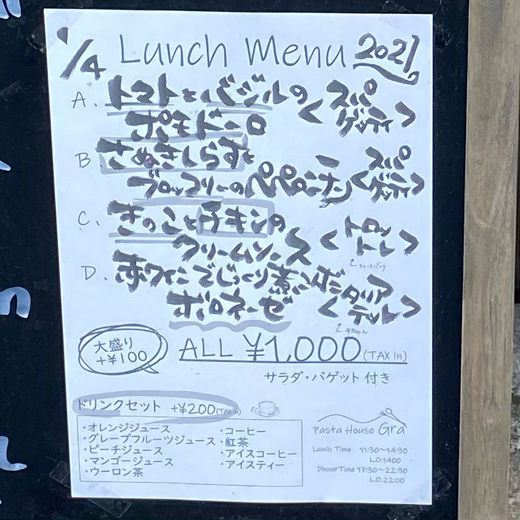 1/4 Lunch Menu 2021
A. トマトとバジルの
ポモドーロ
<スパゲッティ>
B さぬきしらすと
ブロッコリーのペペロンチーノ
<スパゲッティ>
C. きのことチキンの
クリームソース
<トロットレ>
D. 赤ワインでじっくり煮こんだ
ボロネーゼ
大盛り
+¥100
ALL ¥1,000 (TAX in)
サラダ・バゲット 付き
ドリンクセット +¥200 (TAX in)
・オレンジジュース
・グレープフルーツジュース
・ピーチジュース
・マンゴージュース
・ウーロン茶
・コーヒー
・紅茶
・アイスコーヒー
・アイスティー
Pasta House Gra
Lunch Time 11:30~14:30
L.O.14:00
Dinner Time 17:30~22:30
L.O.22:00